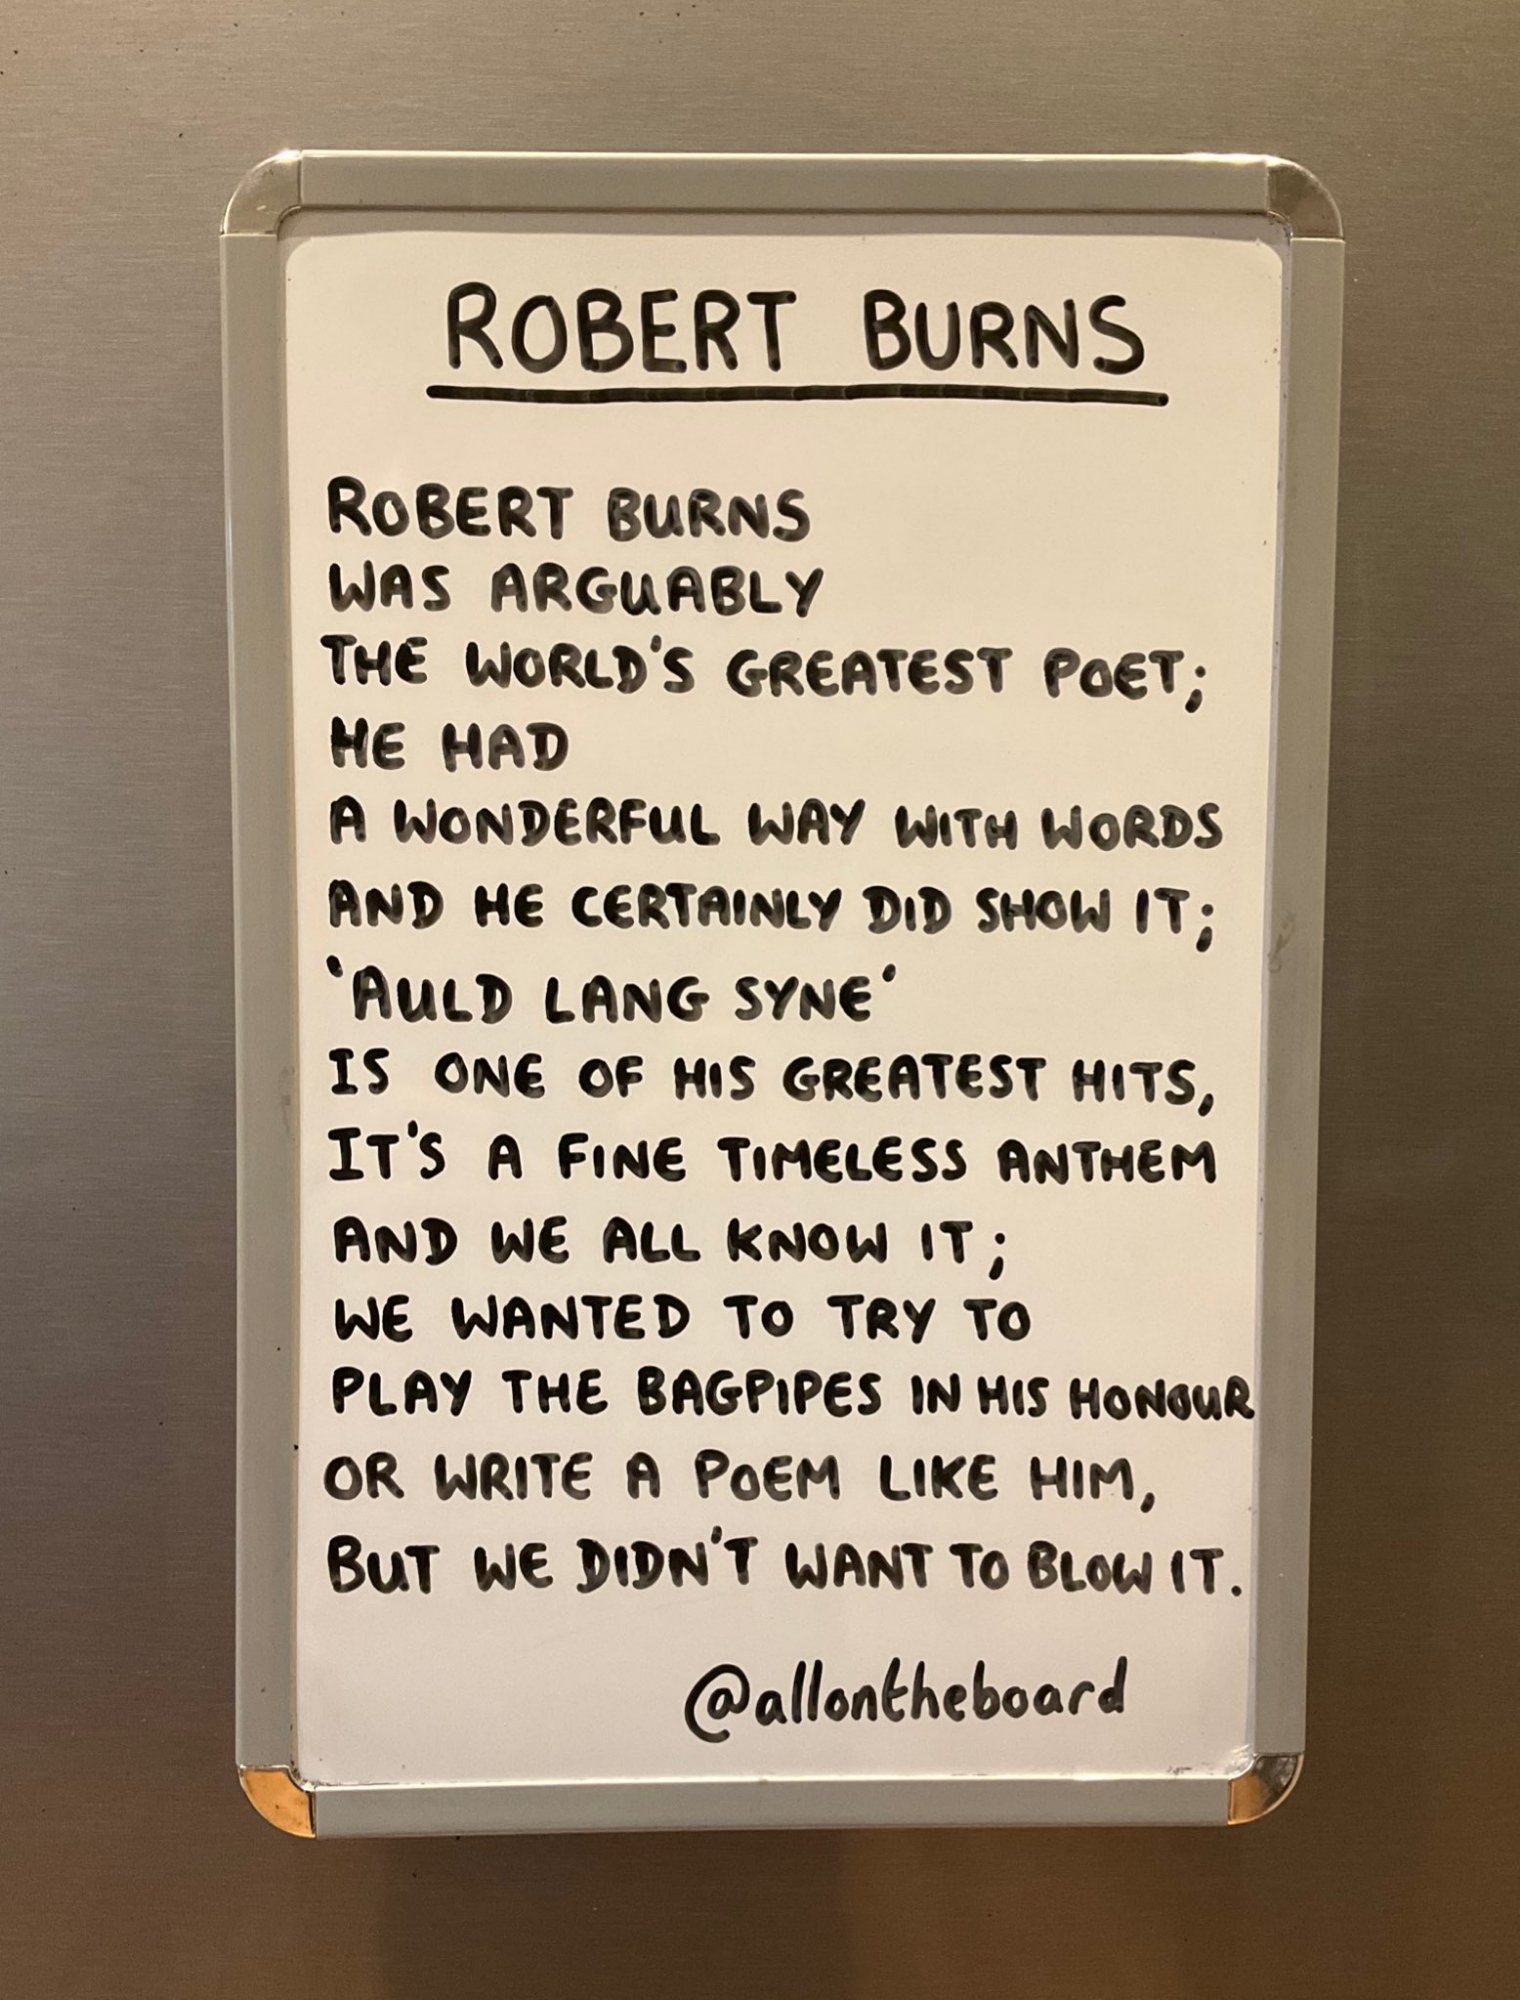 ROBERT BURNS
ROBERT BURNS
WAS ARGUABLY
THE WORLD'S GREATEST POET;
HE HAD
A WONDERFUL WAY WITH WORDS
AND HE CERTAINLY DID SHOW IT;
'AULD LANG SYNE'
IS ONE OF HIS GREATEST HITS,
IT'S A FINE TIMELESS ANTHEM
AND WE ALL KNOW IT;
WE WANTED TO TRY TO
PLAY THE BAGPIPES IN HIS HONOUR
OR WRITE A POEM LIKE HIM,
BUT WE DIDN'T WANT TO BLOW IT.
@allontheboard